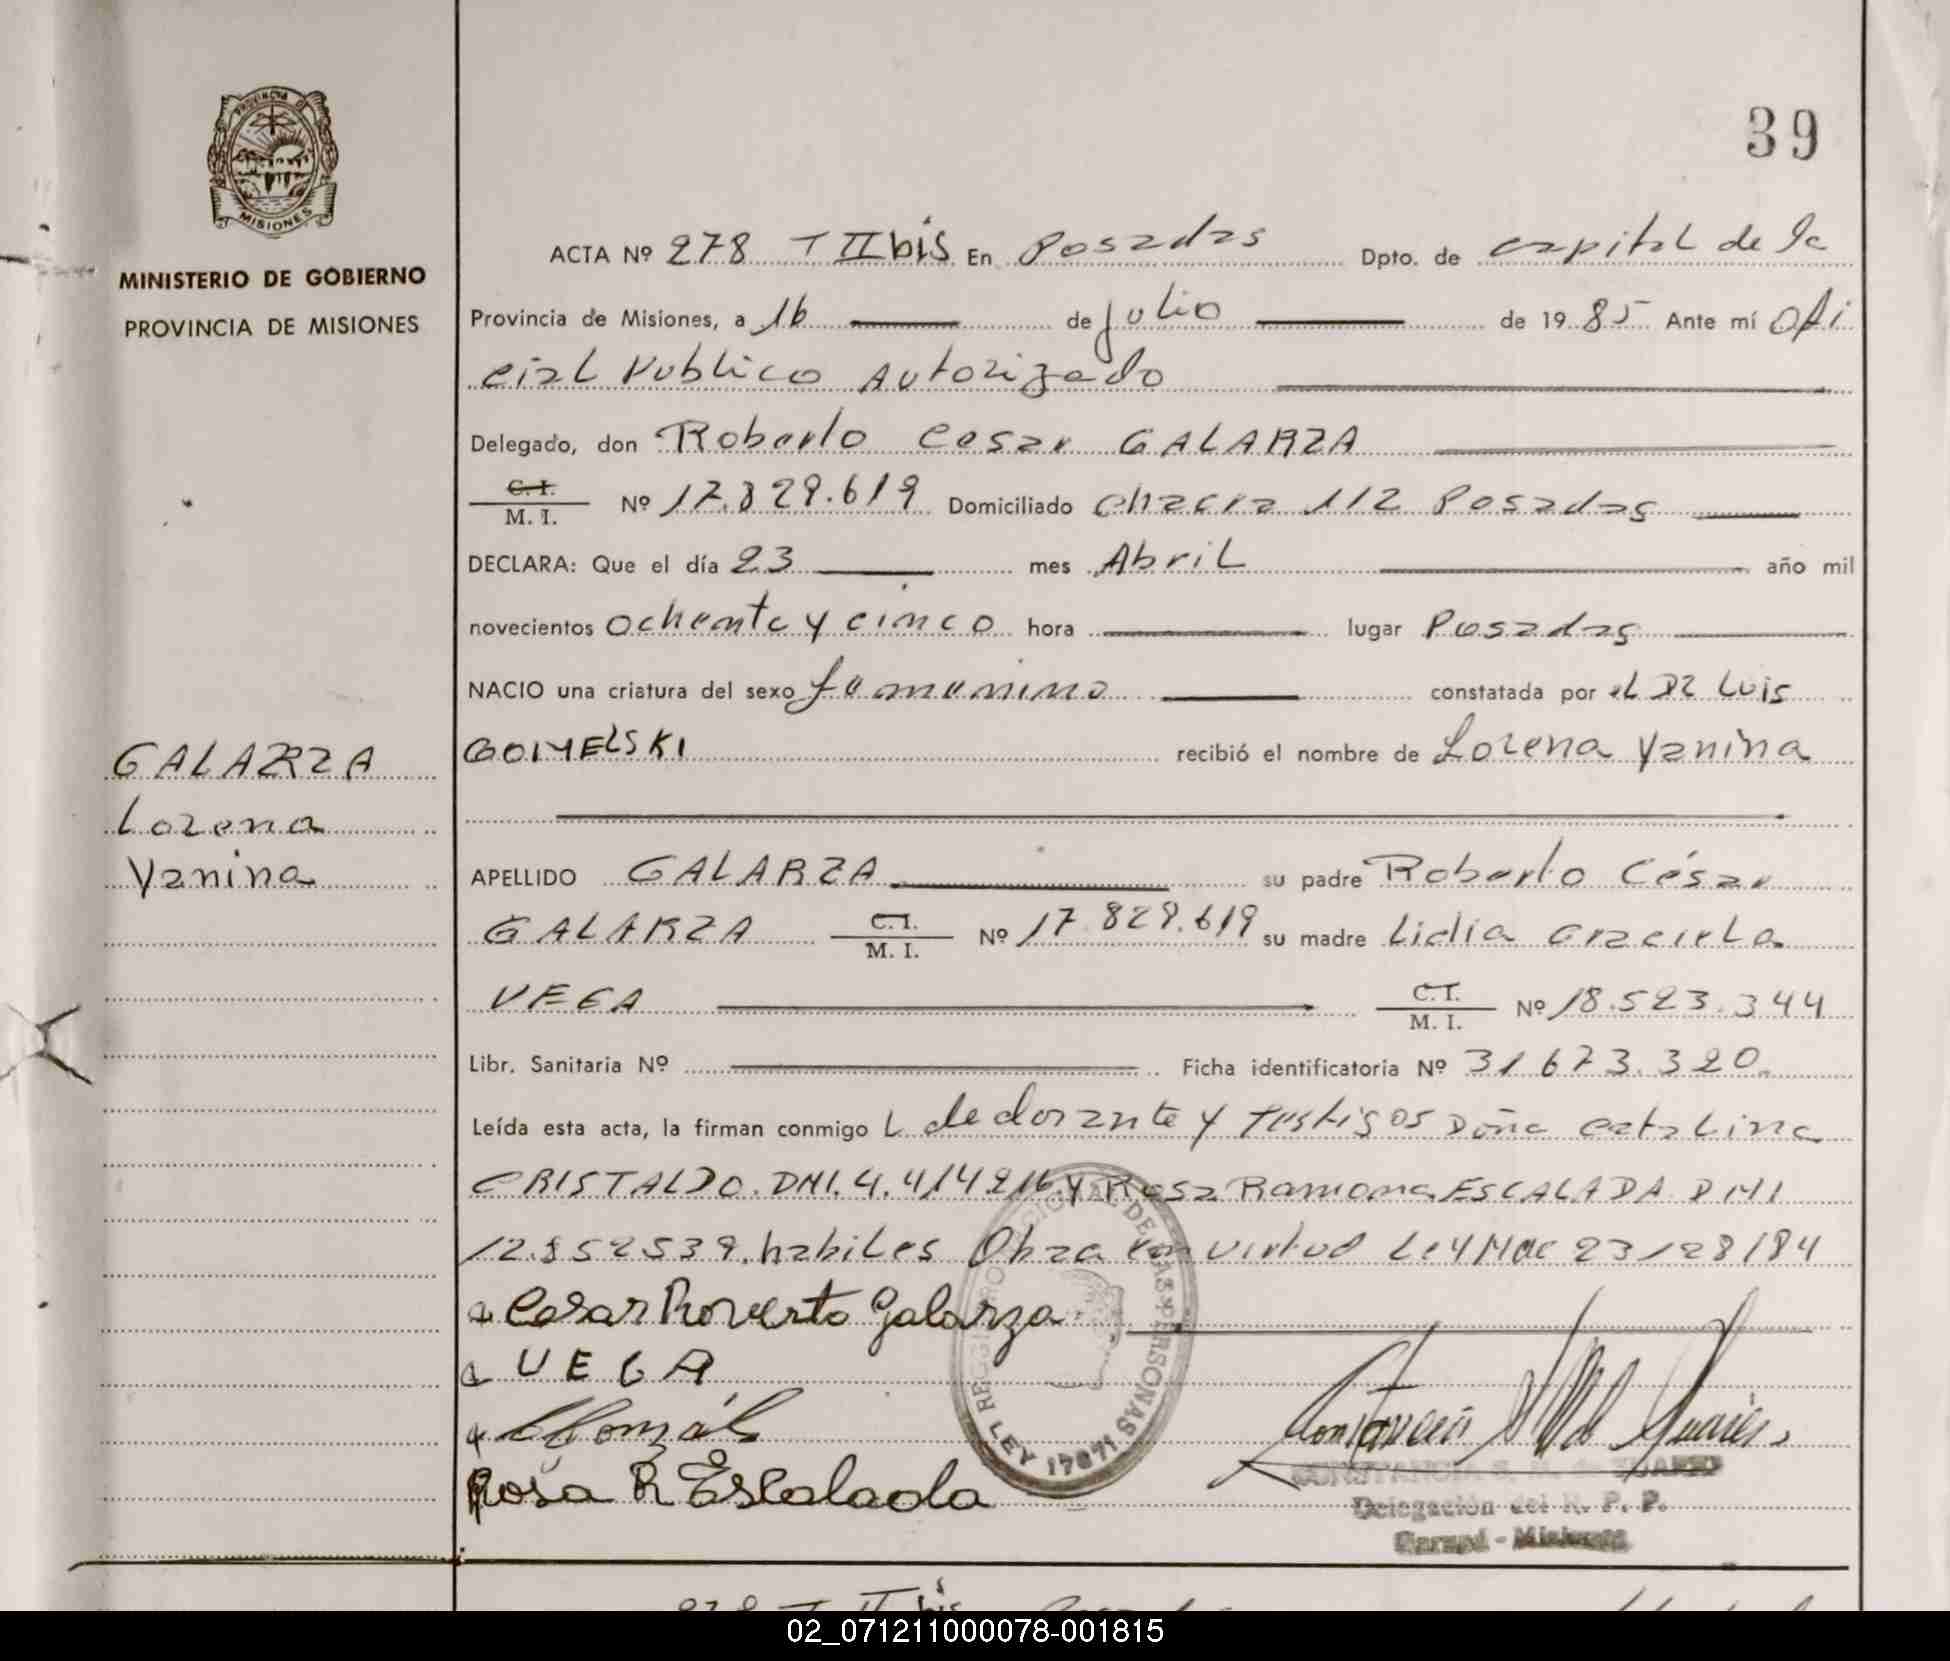 39
PROVINCIA DE
MISIONES
MINISTERIO DE GOBIERNO
PROVINCIA DE MISIONES
ACTA Nº 278 T II bis En Posadas Dpto. de capital de la
Provincia de Misiones, a 16 de julio de 1985 Ante mí Ofi
cial Publico Autorizado
Delegado, don Roberto Cesar GALARZA
C. I.
M. I. Nº 17.829.619 Domiciliado chacra 112 Posadas
DECLARA: Que el día 23 mes Abril año mil
novecientos ochenta y cinco hora lugar Posadas
NACIO una criatura del sexo femenino constatada por el DR Luis
GOMELSKI recibió el nombre de Lorena Yanina
GALARZA
Lorena
Yanina
APELLIDO GALARZA su padre Roberto César
GALARZA C.I. M. I. Nº 17.829.619 su madre Lidia Graciela
VEGA C.I. M. I. Nº 18.523.344
Libr. Sanitaria Nº Ficha identificatoria Nº 31.673.320.
Leída esta acta, la firman conmigo y testigos Doña Catalina
CRISTALDO. DNI. 4.414216 y Rosa Ramona ESCALADA DNI
12.852539. habiles Obra en virtud Ley Nac 23128/84
a Cesar Roverto Galarza
a VEGA
Rosa R Escalada
REGISTRO NACIONAL DE LAS PERSONAS
LEY 17671
CONSTANCIA S. M. de SUAREZ
Delegación del R. P. P.
Garupá - Misiones
278 T II bis Posadas
02_071211000078-001815